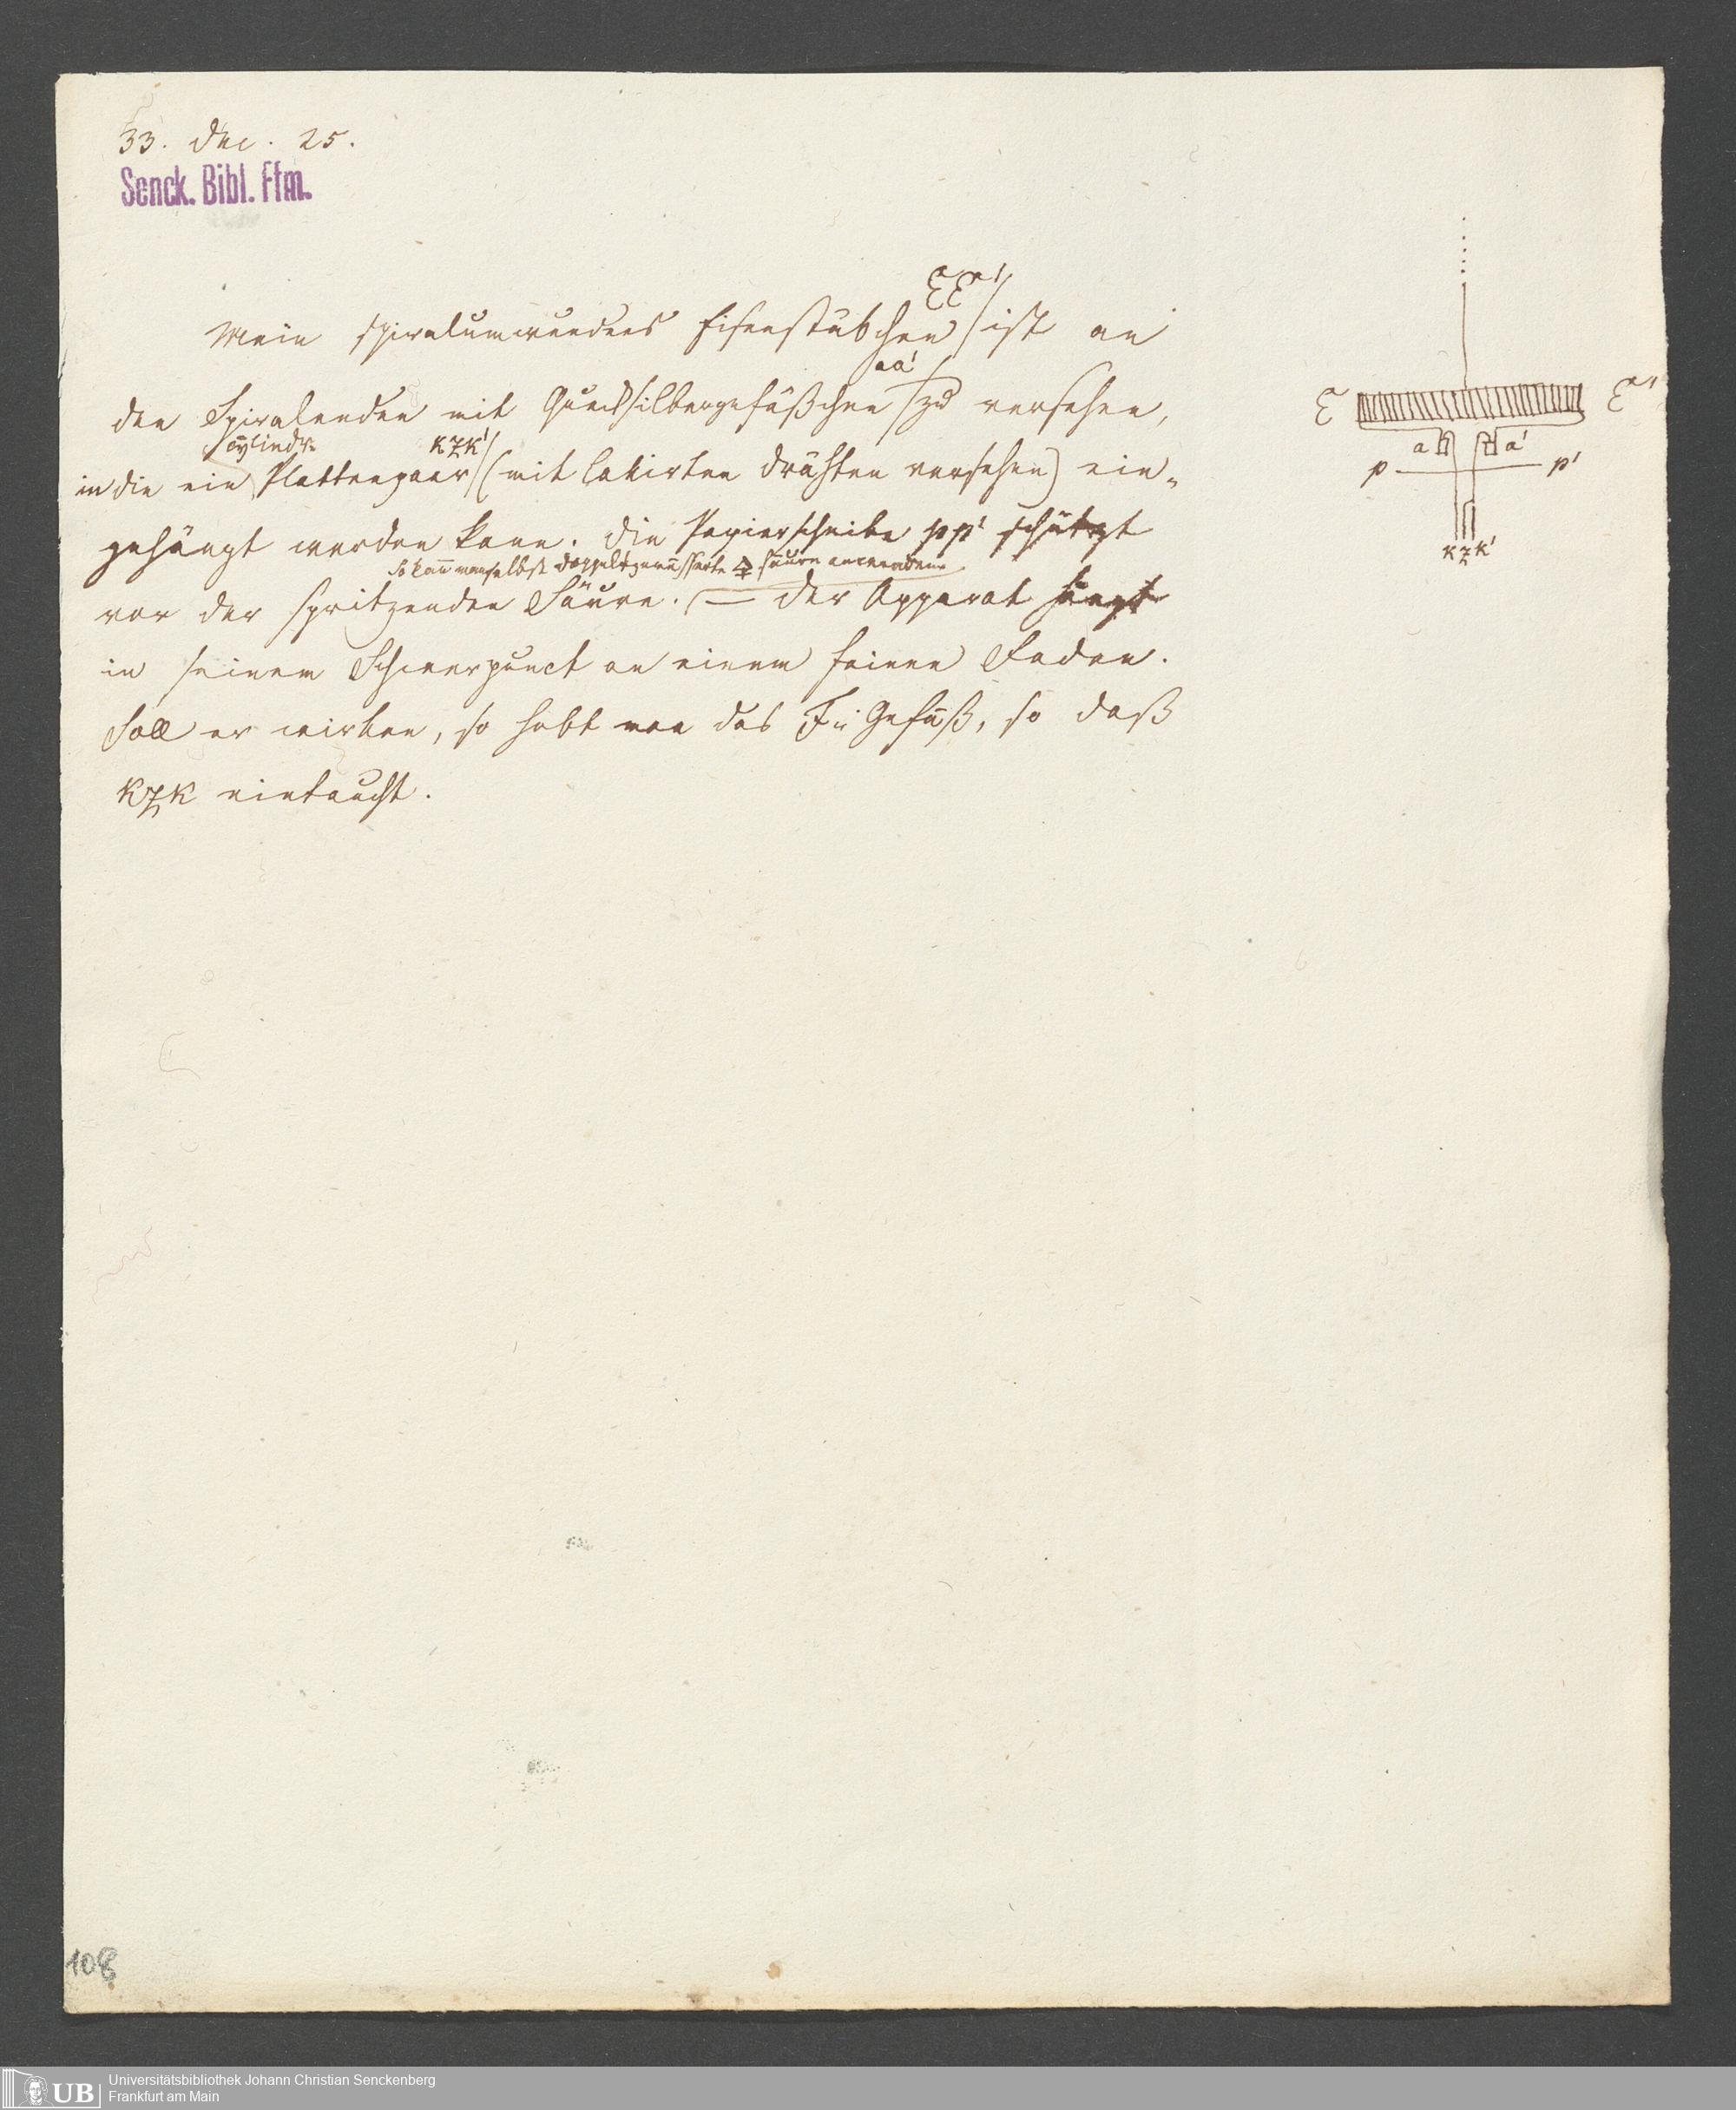 33. Dec. 25.
Senck. Bibl. Ffm.
EE'
Mein spiralumwundnes Eisenstäbchen ist an
aa'
den Spiralenden mit Quecksilbergefäßchen zu versehen,
cylindr. KZK'
in die ein Plattenpaar (mit lakirten Drähten versehen) ein-
gehängt werden kann. Die Papierscheibe pp' schützt
So kann man selbst doppelt gewässerte säure anwenden
vor der spritzenden Säure. — Der Apparat hängt
in seinem Schwerpunct an einem feinen Faden.
Soll er wirken, so hebt man das Gefäß, so daß
KZK eintaucht.
E E'
a a'
p p'
KZK'
108
UB
Universitätsbibliothek Johann Christian Senckenberg
Frankfurt am Main